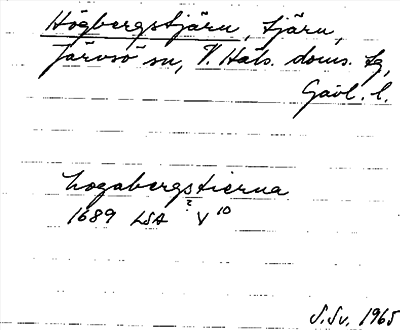 Högbergstjärn, tjärn,
Järvsö sn, V. Häls. doms. tg,
Gävl. l.
hogabergstierna
1689 LSA ? V 10
S.Sv. 1965